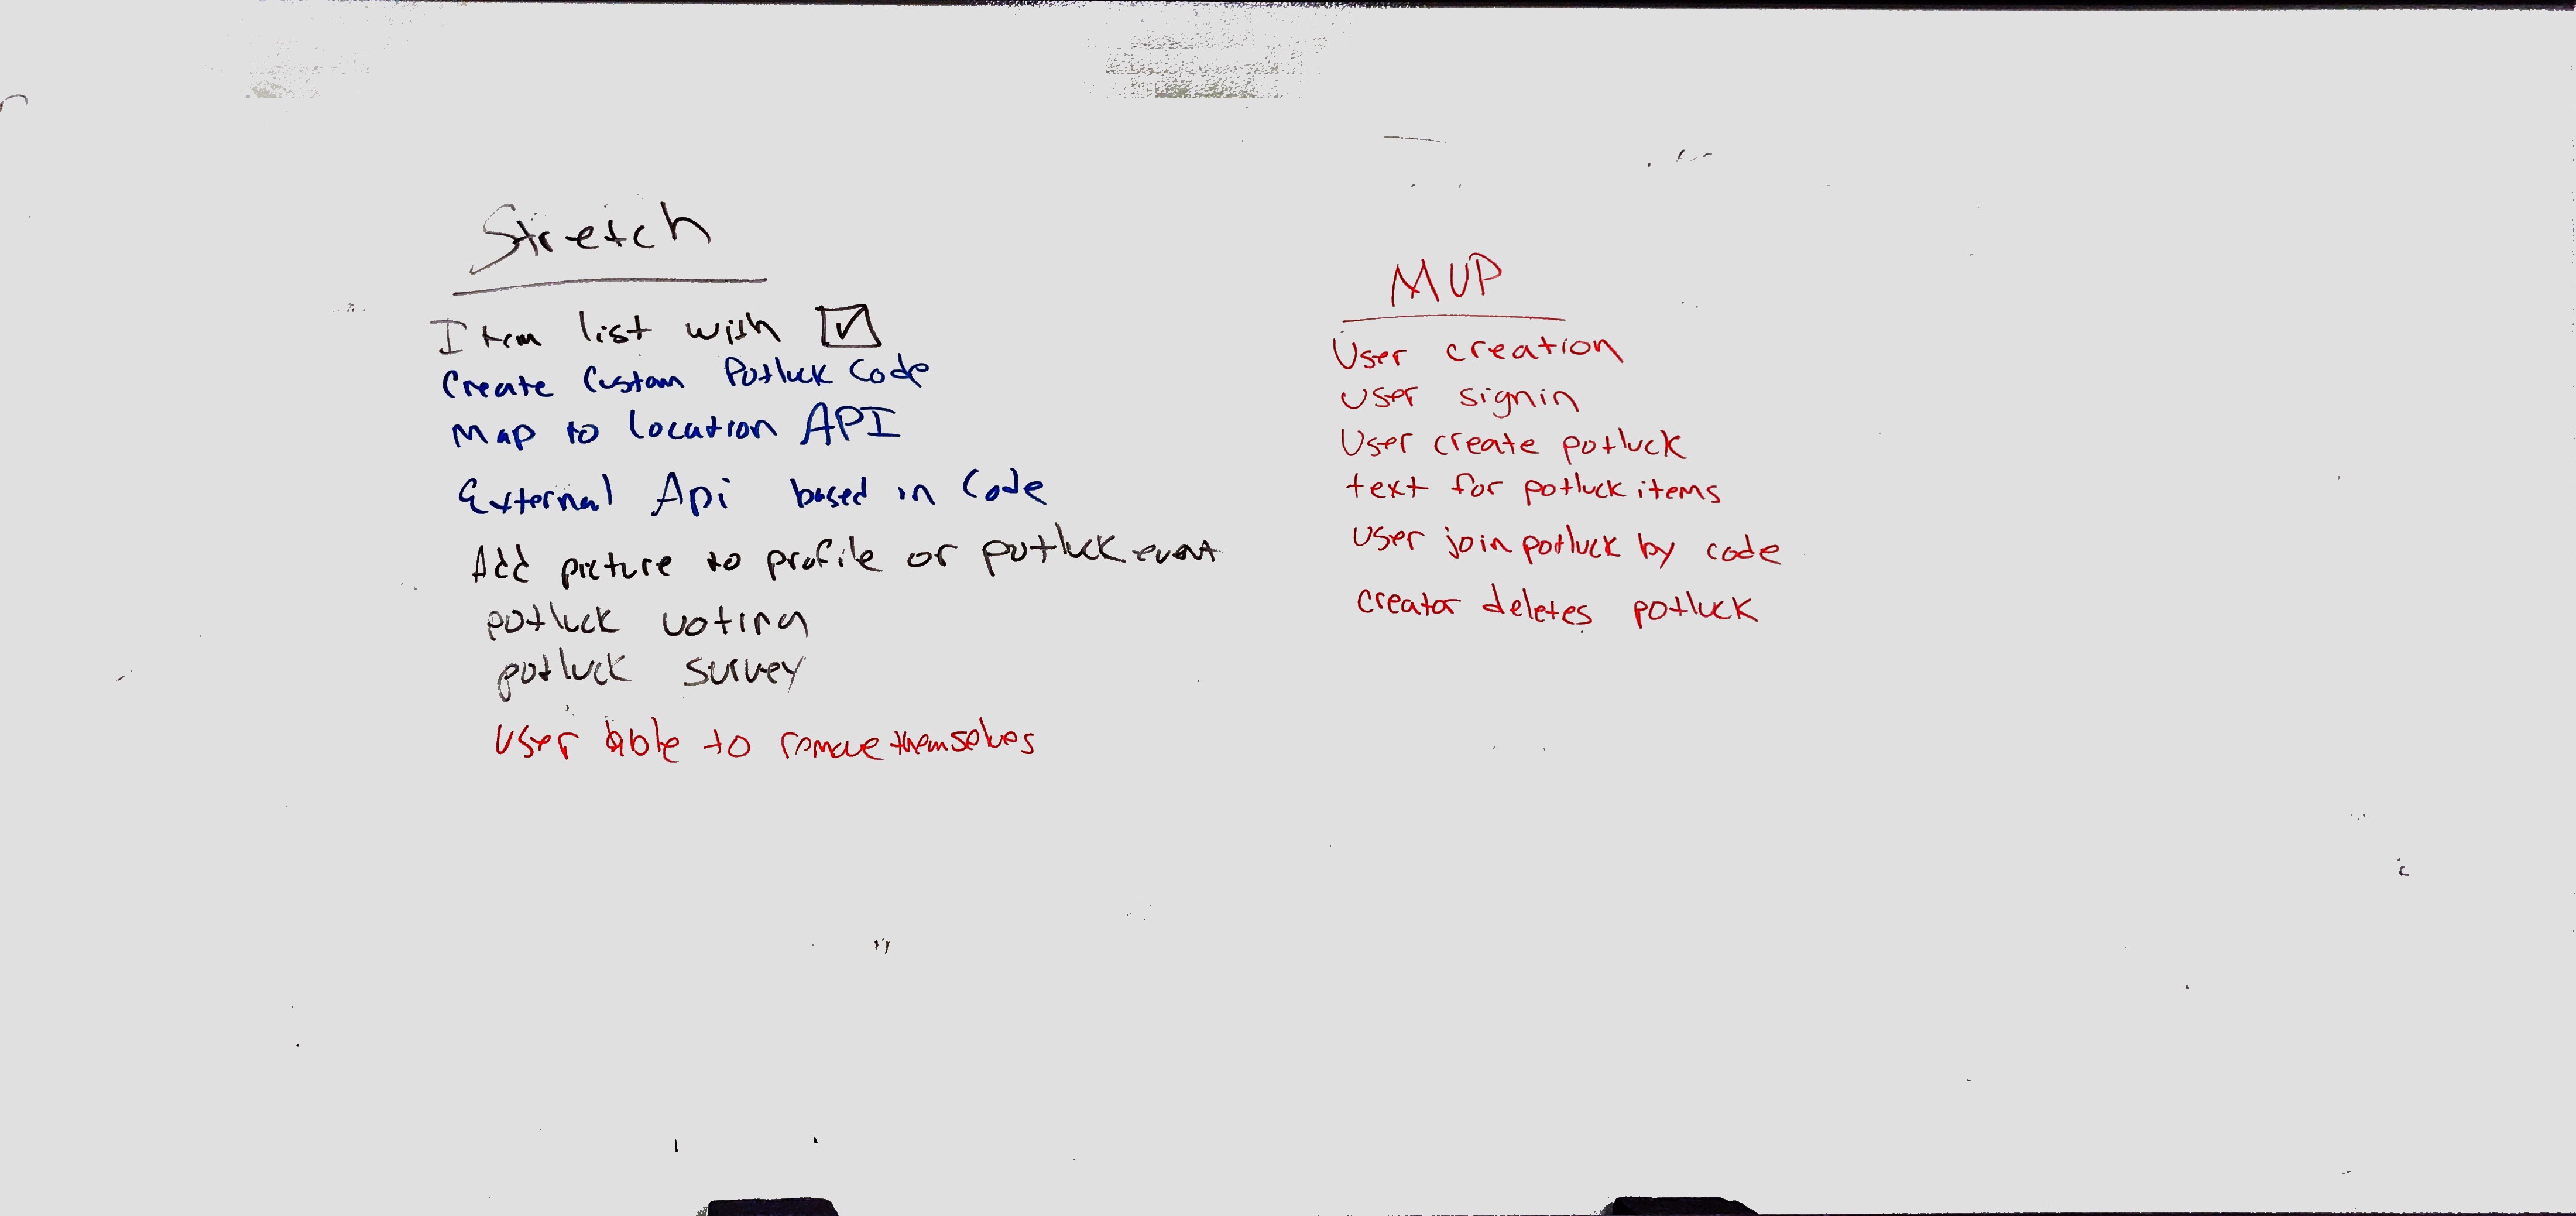 Stretch
Item list with ☑
Create Custom Potluck Code
Map to Location API
External Api based in Code
Add picture to profile or potluck event
potluck voting
potluck survey
User able to remove themselves
MVP
User creation
User signin
User create potluck
text for potluck items
User join potluck by code
Creator deletes potluck